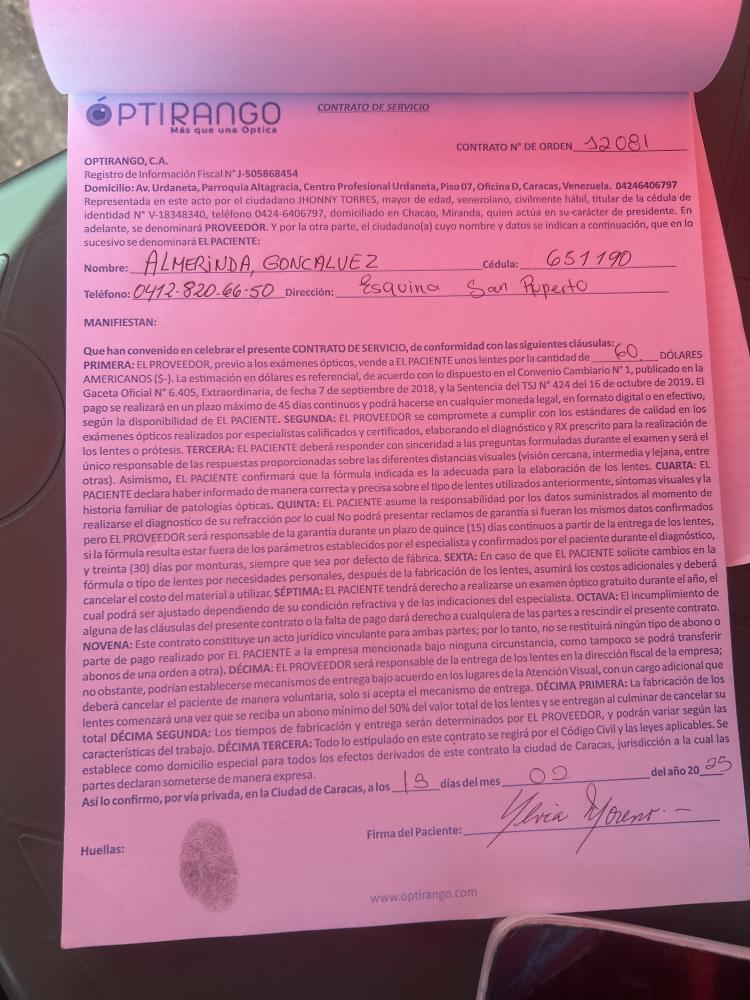 ÓPTIRANGO
Más que una Optica
CONTRATO DE SERVICIO
CONTRATO N° DE ORDEN 12081
OPTIRANGO, C.A.
Registro de Información Fiscal N° J-505868454
Domicilio: Av. Urdaneta, Parroquia Altagracia, Centro Profesional Urdaneta, Piso 07, Oficina D, Caracas, Venezuela. 04246406797
Representada en este acto por el ciudadano JHONNY TORRES, mayor de edad, venezolano, civilmente hábil, titular de la cédula de
identidad N° V-18348340, teléfono 0424-6406797, domiciliado en Chacao, Miranda, quien actúa en su carácter de presidente. En
adelante, se denominará PROVEEDOR. Y por la otra parte, el ciudadano(a) cuyo nombre y datos se indican a continuación, que en lo
sucesivo se denominará EL PACIENTE:
Nombre: ALMERINDA, GONCALVEZ Cédula: 651190
Teléfono: 0412-820-66-50 Dirección: Esquina San Ruperto
MANIFIESTAN:
Que han convenido en celebrar el presente CONTRATO DE SERVICIO, de conformidad con las siguientes cláusulas:
PRIMERA: EL PROVEEDOR, previo a los exámenes ópticos, vende a EL PACIENTE unos lentes por la cantidad de 60 DÓLARES
AMERICANOS ($-). La estimación en dólares es referencial, de acuerdo con lo dispuesto en el Convenio Cambiario N° 1, publicado en la
Gaceta Oficial N° 6.405, Extraordinaria, de fecha 7 de septiembre de 2018, y la Sentencia del TSJ N° 424 del 16 de octubre de 2019. El
pago se realizará en un plazo máximo de 45 días continuos y podrá hacerse en cualquier moneda legal, en formato digital o en efectivo,
según la disponibilidad de EL PACIENTE. SEGUNDA: EL PROVEEDOR se compromete a cumplir con los estándares de calidad en los
exámenes ópticos realizados por especialistas calificados y certificados, elaborando el diagnóstico y RX prescrito para la realización de
los lentes o prótesis. TERCERA: EL PACIENTE deberá responder con sinceridad a las preguntas formuladas durante el examen y será el
único responsable de las respuestas proporcionadas sobre las diferentes distancias visuales (visión cercana, intermedia y lejana, entre
otras). Asimismo, EL PACIENTE confirmará que la fórmula indicada es la adecuada para la elaboración de los lentes. CUARTA: EL
PACIENTE declara haber informado de manera correcta y precisa sobre el tipo de lentes utilizados anteriormente, síntomas visuales y la
historia familiar de patologías ópticas. QUINTA: EL PACIENTE asume la responsabilidad por los datos suministrados al momento de
realizarse el diagnostico de su refracción por lo cual No podrá presentar reclamos de garantía si fueran los mismos datos confirmados
pero EL PROVEEDOR será responsable de la garantía durante un plazo de quince (15) días continuos a partir de la entrega de los lentes,
si la fórmula resulta estar fuera de los parámetros establecidos por el especialista y confirmados por el paciente durante el diagnóstico,
y treinta (30) días por monturas, siempre que sea por defecto de fábrica. SEXTA: En caso de que EL PACIENTE solicite cambios en la
fórmula o tipo de lentes por necesidades personales, después de la fabricación de los lentes, asumirá los costos adicionales y deberá
cancelar el costo del material a utilizar. SÉPTIMA: EL PACIENTE tendrá derecho a realizarse un examen óptico gratuito durante el año, el
cual podrá ser ajustado dependiendo de su condición refractiva y de las indicaciones del especialista. OCTAVA: El incumplimiento de
alguna de las cláusulas del presente contrato o la falta de pago dará derecho a cualquiera de las partes a rescindir el presente contrato.
NOVENA: Este contrato constituye un acto jurídico vinculante para ambas partes; por lo tanto, no se restituirá ningún tipo de abono o
parte de pago realizado por EL PACIENTE a la empresa mencionada bajo ninguna circunstancia, como tampoco se podrá transferir
abonos de una orden a otra). DÉCIMA: EL PROVEEDOR será responsable de la entrega de los lentes en la dirección fiscal de la empresa;
no obstante, podrían establecerse mecanismos de entrega bajo acuerdo en los lugares de la Atención Visual, con un cargo adicional que
deberá cancelar el paciente de manera voluntaria, solo si acepta el mecanismo de entrega. DÉCIMA PRIMERA: La fabricación de los
lentes comenzará una vez que se reciba un abono mínimo del 50% del valor total de los lentes y se entregan al culminar de cancelar su
total DÉCIMA SEGUNDA: Los tiempos de fabricación y entrega serán determinados por EL PROVEEDOR, y podrán variar según las
características del trabajo. DÉCIMA TERCERA: Todo lo estipulado en este contrato se regirá por el Código Civil y las leyes aplicables. Se
establece como domicilio especial para todos los efectos derivados de este contrato la ciudad de Caracas, jurisdicción a la cual las
partes declaran someterse de manera expresa.
Así lo confirmo, por vía privada, en la Ciudad de Caracas, a los 19 días del mes 02 del año 2025
Firma del Paciente: Ylvia Moreno
Huellas:
www.optirango.com